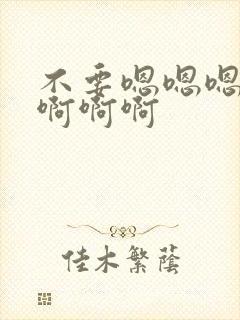 不要嗯嗯嗯
啊啊啊
佳木繁蔭